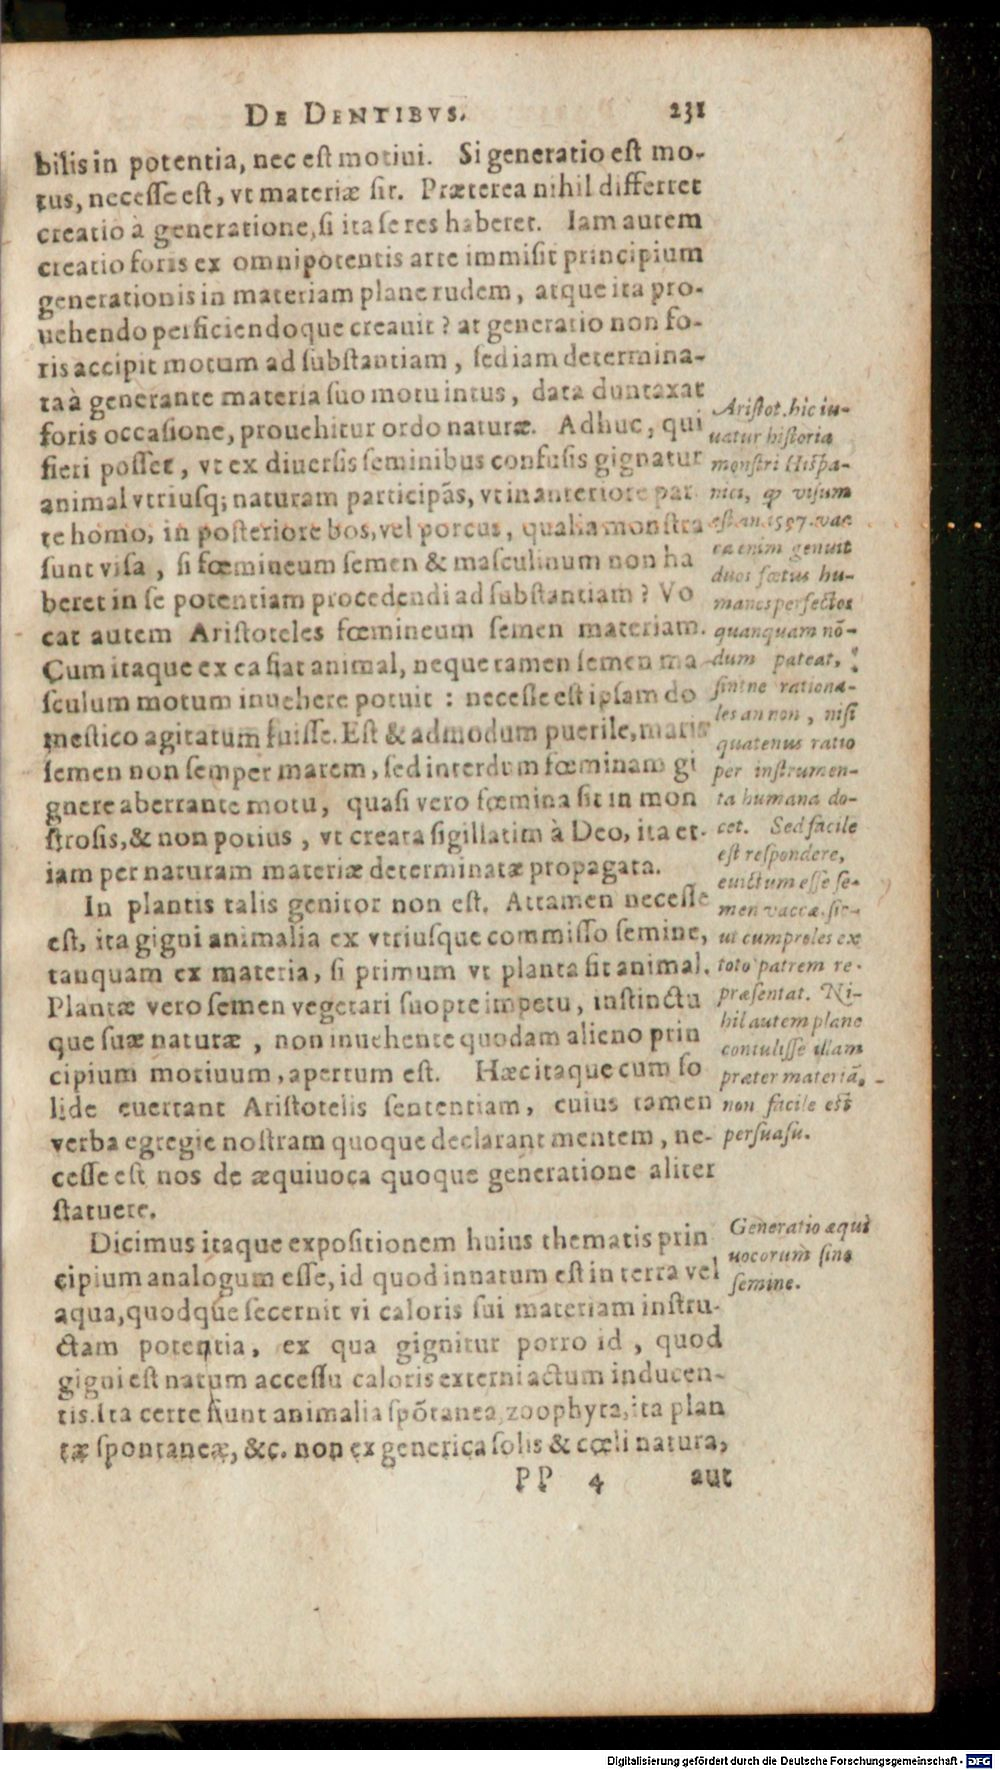 DE DENTIBVS. 231
bilis in potentia, nec est motiui. Si generatio est mo-
tus, necesse est, vt materiæ sit. Præterea nihil differret
creatio à generatione, si ita se res haberet. Iam autem
creatio foris ex omnipotentis arte immisit principium
generationis in materiam plane rudem, atque ita pro-
uehendo perficiendoque creauit? at generatio non fo-
ris accipit motum ad substantiam, sed iam determina-
ta à generante materia suo motu intus, data duntaxat
foris occasione, prouehitur ordo naturæ. Adhuc, qui
fieri posset, vt ex diuersis seminibus confusis gignatur
animal vtriusq; naturam participãs, vt in anteriore par
te homo, in posteriore bos, vel porcus, qualia monstra
sunt visa, si fœmineum semen & masculinum non ha
beret in se potentiam procedendi ad substantiam? Vo
cat autem Aristoteles fœmineum semen materiam.
Cum itaque ex ea fiat animal, neque tamen semen ma
sculum motum inuehere potuit: necesse est ipsam do
mestico agitatum fuisse. Est & admodum puerile, maris
semen non semper marem, sed interdum fœminam gi
gnere aberrante motu, quasi vero fœmina sit in mon
strosis, & non potius, vt creata sigillatim à Deo, ita et-
iam per naturam materiæ determinatæ propagata.
In plantis talis genitor non est. Attamen necesse
est, ita gigni animalia ex vtriusque commisso semine,
tanquam ex materia, si primum vt planta sit animal.
Plantæ vero semen vegetari suopte impetu, instinctu
que suæ naturæ, non inuehente quodam alieno prin
cipium motiuum, apertum est. Hæc itaque cum so
lide euertant Aristotelis sententiam, cuius tamen
verba egregie nostram quoque declarant mentem, ne-
cesse est nos de æquiuoca quoque generatione aliter
statuere.
Dicimus itaque expositionem huius thematis prin
cipium analogum esse, id quod innatum est in terra vel
aqua, quodque secernit vi caloris sui materiam instru-
ctam potentia, ex qua gignitur porro id, quod
gigni est natum accessu caloris externi actum inducen-
tis. Ita certe fiunt animalia spõtanea, zoophyta, ita plan
tæ spontaneæ, &c. non ex generica solis & cœli natura,
PP 4 aut
Aristot. hic iu-
uatur historia
monstri Hispa-
nici, qȝ visum
est an. 1597. vac
ca enim genuit
duos fœtus hu-
manos perfectos
quanquam nõ-
dum pateat,
sintne rationa-
les an non, nisi
quatenus ratio
per instrumen-
ta humana do-
cet. Sed facile
est respondere,
euictum esse se-
men vaccæ, sic-
ut cum proles ex
toto patrem re-
præsentat. Ni-
hil autem plane
contulisse illam
præter materiã,
non facile est
persuasu.
Generatio æqui
uocorum sine
semine.
Digitalisierung gefördert durch die Deutsche Forschungsgemeinschaft - DFG